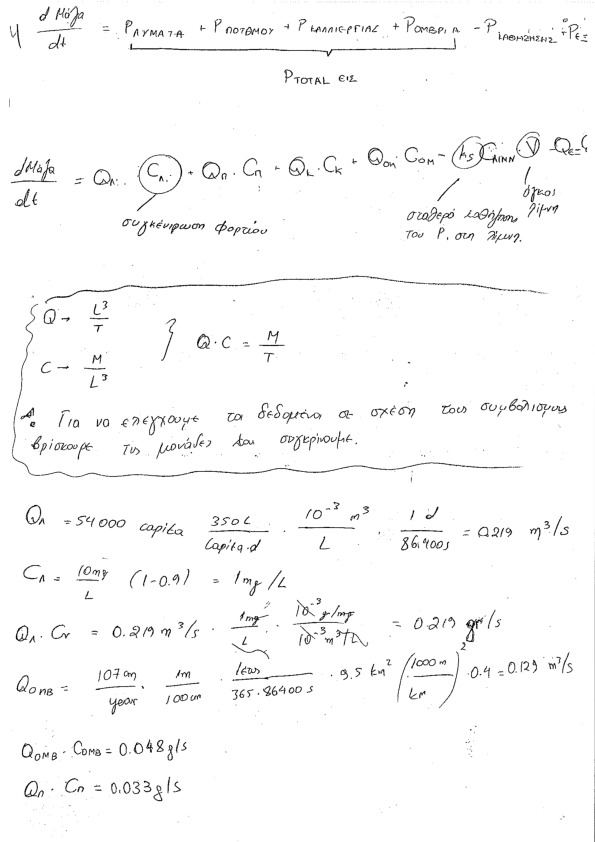 4 dΜάζα/dt = P ΛΥΜΑΤΑ + P ΠΟΤΑΜΟΥ + P ΚΑΛΛΙΕΡΓΙΑΣ + P ΟΜΒΡΙΑ - P ΚΑΘΙΖΗΣΗΣ + P ΕΞ
P TOTAL ΕΙΣ
dΜάζα/dt = QΛ · CΛ + QΠ · CΠ + QΚ · CΚ + QΟΜ COM - ks CΛΙΜΝ V - QΕΞ C
συγκέντρωση φορτίου
σταθερό καθίζησης του P. στη λίμνη.
όγκος λίμνη
Q → L³/T
C → M/L³
} Q · C = M/T
Για να ελεγχουμε τα δεδομένα σε σχέση τους συμβολισμους
βρισκουμε τις μονάδες και συγκρίνουμε.
QΛ = 54000 capita 350L/capita·d · 10⁻³ m³/L · 1 d/86.400s = 0.219 m³/s
CΛ = 10mg/L (1-0.9) = 1mg/L
QΛ · Cr = 0.219 m³/s · 1mg/L · 10⁻³ g/mg / 10⁻³ m³/L = 0.219 gr/s
QΟΜΒ = 107cm/year · 1m/100cm · 1έτος/365·86400 s · 9.5 km² (1000m/km)² · 0.4 = 0.129 m³/s
QΟΜΒ · CΟΜΒ = 0.048g/s
QΠ · CΠ = 0.033g/s